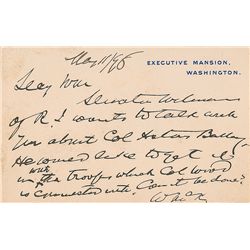 EXECUTIVE MANSION,
WASHINGTON.
May 11/98
Secy War
Senator Wetmore
of R.I. wants to talk with
you about Col
He would like to get
with in the troops which Col Wood
is connected with. Can it be done?
WMcK